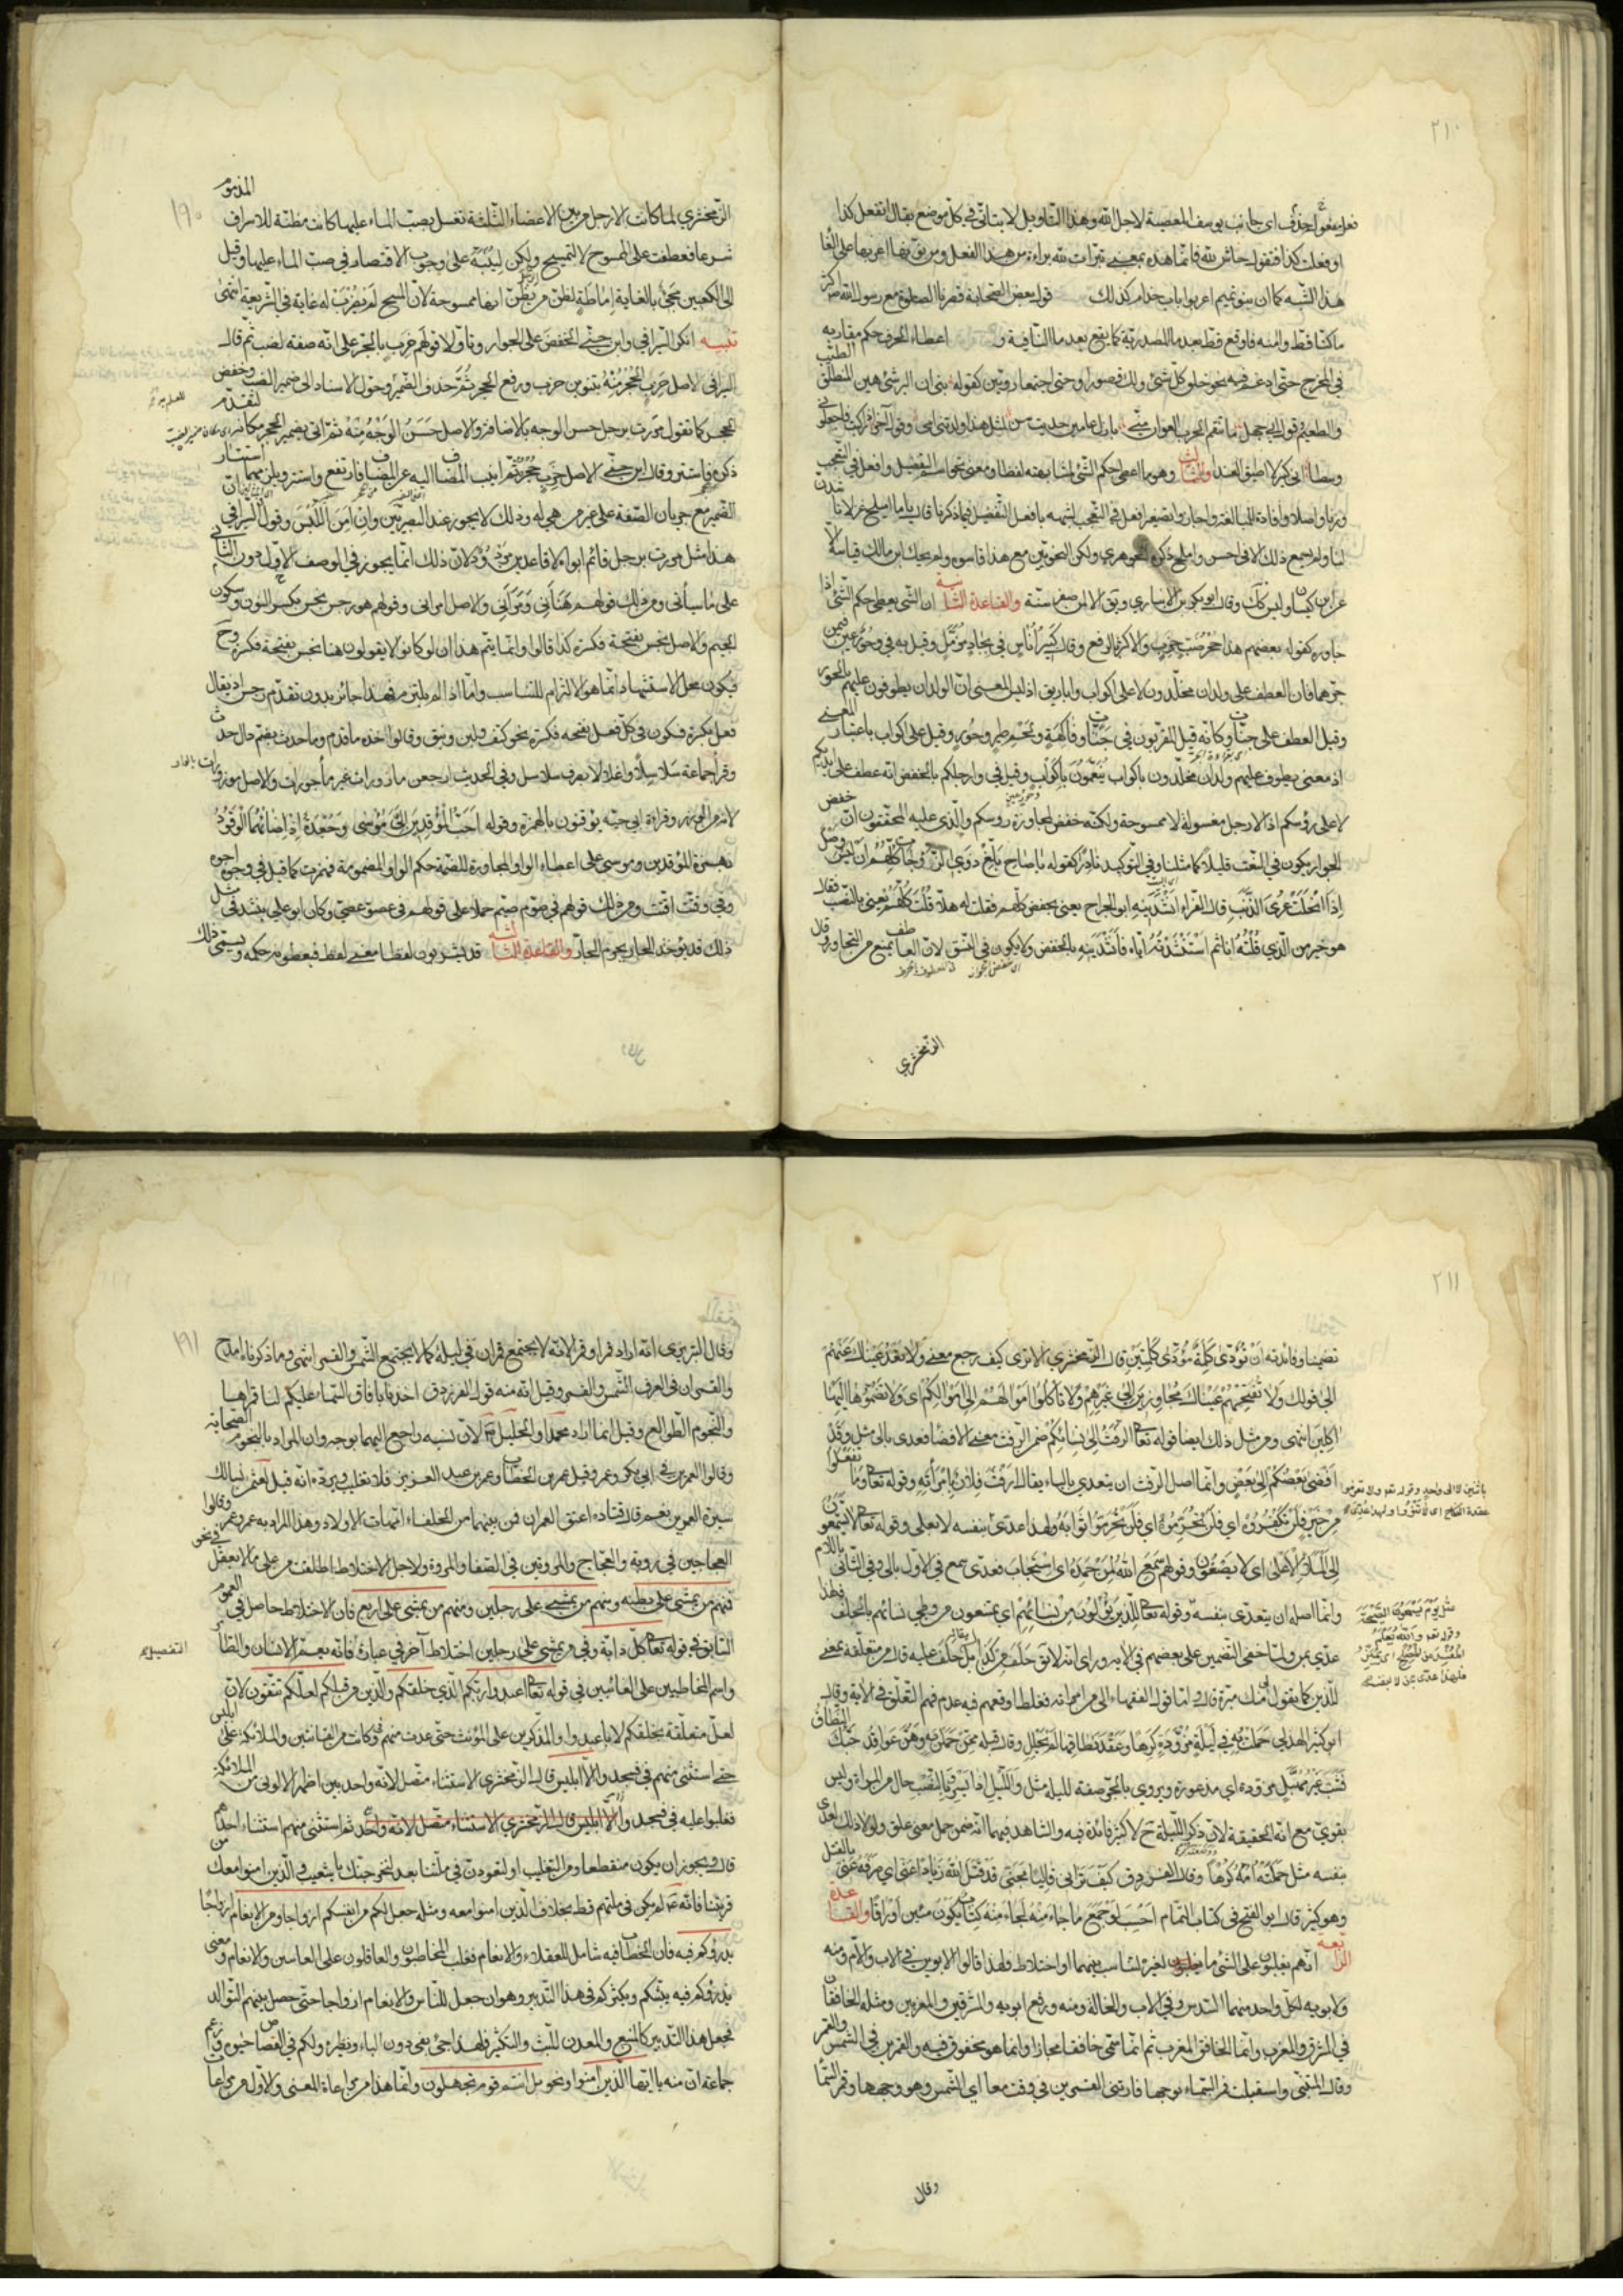 ٢١٠
فعل يفعلوا حذف اي جانب يوسف المعصية لاجل الله وهذا التاويل لا يتاتى في كل موضع يقال اتفعل كذا
او فعلت كذا فتقول حاش لله فانما هذه بمعنى تبرات لله براءة من هذا الفعل ومن نون اعربها على الغا
هذا الشبه كما ان بني تميم اعربوا باب حذام كذلك قول بعض الصحابة قصرنا الصلوة مع رسول الله اكثر
ما كنا قط وامنه فاوقع قط بعد ما المصدرية كما يقع بعد ما النافية و اعطاء الحرف حكم مقاربه
في المخرج حتى ادغم فيه نحو خلق كل شئ ولك قصورا وحتى اجتمعا رويين كقوله بني ان البر شئ هين المنطق الطيب
والطعيم وقول ابي جهل ما تنقم الحرب العوان مني بازل عامين حديث سن لمثل هذا ولدتني امي وقول آخر اذا ركبت فاجعلوني
وسطا اني كبير لا اطيق العندا والثالث وهو ما اعطي حكم الشئ لمشابهته له لفظا ومعنى نحو اسم التفضيل وافعل في التعجب
وزنا واصلا وافادة للمبالغة واجازوا تصغير افعل في التعجب لشبهه بافعل التفضيل فيما ذكرنا قال ياما اميلح غزلانا شدن
لنا ولم يسمع ذلك الا في احسن واملح ذكره الجوهري ولكن النحويين مع هذا قاسوه ولم يحك ابن مالك قياسه الا
عن ابن كيسان وليس كذلك وقال ابو بكر بن الانباري ولا يقال الا لمن صغر سنه والقاعدة الثانية ان الشئ يعطى حكم الشئ اذا
جاوره كقول بعضهم هذا حجر ضب خرب والاكثر الرفع وقال كبير اناس في بجاد مزمل وقيل به في وحور عين فيمن
جرهما فان العطف على ولدان مخلدون لا على اكواب واباريق اذ ليس المعنى ان الولدان يطوفون عليهم بالحور
وقيل العطف على جنات وكانه قيل المقربون في جنات وفاكهة ولحم طير وحور وقيل على اكواب باعتبار المعنى
اذ معنى يطوف عليهم ولدان مخلدون باكواب ينعمون باكواب وقيل في وارجلكم بالخفض انه عطف على ايديكم
لا على رؤسكم اذ الارجل مغسولة لا ممسوحة ولكنه خفض لمجاورة رؤسكم والذي عليه المحققون ان خفض
الجوار يكون في النعت قليلا كما مثلنا وفي التوكيد نادرا كقوله يا صاح بلغ ذوي الزوجات كلهم ان ليس وصل
اذا انحلت عرى الذنب قال الفراء انشدنيه ابو الجراح يعني بخفض كلهم فقلت له هلا قلت كلهم يعني بالنصب فقال
هو خير من الذي قلته انا ثم استنشدته اياه فانشدنيه بالخفض ولا يكون في النسق لان العاطف يمنع من التجاور وقال
الزمخشري
١٩٠
الزمخشري لما كانت الارجل من بين الاعضاء الثلثة تغسل بصب الماء عليها كانت مظنة للاسراف المذموم
شرعا فعطفت على الممسوح لا لتمسح ولكن لينبه على وجوب الاقتصاد في صب الماء عليها وقيل
الى الكعبين فجئ بالغاية اماطة لظن من يظن انها ممسوحة لان المسح لم يضرب له غاية في الشريعة انتهى
تنبيه انكر السيرافي وابن جني الخفض على الجوار وتاولا قولهم خرب بالجر على انه صفة لضب ثم قال
السيرافي الاصل خرب الجحر منه بتنوين خرب ورفع الجحر ثم حذف الضمير وحول الاسناد الى ضمير الضب وخفض
الجحر كما تقول مررت برجل حسن الوجه بالاضافة والاصل حسن الوجه منه ثم اتى بضمير الجحر مكانه لتقدم
ذكره فاستتر وقال ابن جني الاصل خرب جحره ثم انيب المضاف اليه عن المضاف فارتفع واستتر ويلزمهما استتار
الضمير مع جريان الصفة على غير من هي له وذلك لا يجوز عند البصريين وان امن اللبس وقول السيرافي ان
هذا مثل مررت برجل قائم ابواه لا قاعدين مردود لان ذلك انما يجوز في الوصف الاول دون الثاني
على ما سياتي ومن ذلك قولهم هنأني ومرأني والاصل امرأني وقولهم هو رجس نجس بكسر النون وسكون
الجيم والاصل نجس بفتحة فكسرة كذا قالوا وانما يتم هذا ان لو كانوا لا يقولون هنا نجس بفتحة فكسرة وح
فيكون محل الاستشهاد انما هو الالتزام للتناسب واما اذا لم يلتزم فهذا جائز بدون تقدم رجس اذ يقال
فعل بكسرة فسكون في كل فعل بفتحه فكسرة نحو كتف ولبن ونبق وقالوا اخذه ما قدم وما حدث بضم دال حدث
وقرأ جماعة سلاسلا واغلالا بصرف سلاسل وفي الحديث ارجعن مازورات غير ماجورات والاصل موزورات
لانه من الوزر وقراءة ابي حية يؤقنون بالهمزة وقوله احب المؤقدين الي مؤسى وجعدة اذ اضاءهما الوقود
بهمزة المؤقدين ومؤسى على اعطاء الواو المجاورة للضمة حكم الواو المضمومة فهمزت كما قيل في وجوه اجوه
وفي وقتت اقتت ومن ذلك قولهم في صوم صيم حملا على قولهم في عصو عصي وكان ابو علي ينشد في مثل
ذلك قد يؤخذ الجار بجرم الجار والقاعدة الثالثة قد يشربون لفظا معنى لفظ فيعطونه حكمه ويسمى ذلك
٢١١
تضمينا وفائدته ان تؤدى كلمة مؤدى كلمتين قال الزمخشري الا ترى كيف رجع معنى ولا تعد عيناك عنهم
الى قولك ولا تقتحمهم عيناك مجاوزين الى غيرهم ولا تاكلوا اموالهم الى اموالكم اي ولا تضموها اليها
آكلين انتهى ومن مثل ذلك ايضا قوله تعا الرفث الى نسائكم ضمن الرفث معنى الافضا فعدى بالى مثل وقد
افضى بعضكم الى بعض وانما اصل الرفث ان يتعدى بالباء يقال ارفث فلان بامرأته وقوله تعا وما يفعلوا
من خير فلن يكفروه اي فلن يحرموه اي فلن يحرموا ثوابه ولهذا عدى بنفسه لا بعلى وقوله تعا لا يسمعون
الى الملأ الاعلى اي لا يصغون وقولهم سمع الله لمن حمده اي استجاب فعدى سمع في الاول بالى وفي الثاني باللام
وانما اصله ان يتعدى بنفسه وقوله تعا للذين يؤلون من نسائهم اي يمتنعون من وطي نسائهم بالحلف فلهذا
عدي بمن ولما خفى التضمين على بعضهم في الآية وراى انه لا يقال حلف من كذا بل حلف عليه قال من متعلقة بمعنى
للذين كما يقول لي منك مبرة قال واما قول الفقهاء الى من امراته فغلط اوقعهم فيه عدم فهم التعلق في الآية وقال
ابو كبير الهذلي حملت به في ليلة مزؤدة كرها وعقد نطاقها لم يحلل وقال قبله ممن حملن به وهن عواقد حبك النطاق
فشب غير مهبل مزؤدة اي مذعورة ويروى بالجر صفة لليلة مثل والليل اذا يسر وبالنصب حال من المرأة وليس
بقوي مع انه الحقيقة لان ذكر الليلة ح لا كبير فائدة فيه والشاهد فيهما انه ضمن حمل معنى علق ولولا ذلك لعدي
بنفسه مثل حملته امه كرها وقال الفرزدق كيف تراني قاليا مجني قد قتل الله زيادا عني اي صرفه عني بالقتل
وهو كثير قال ابو الفتح في كتاب التمام احسب لو جمع ما جاء منه لجاء منه كتاب يكون مئين اوراقا والقاعدة
الرابعة انهم يغلبون على الشئ ما لغيره لتناسب بينهما او اختلاط فلهذا قالوا الابوين في الاب والام ومنه
ولابويه لكل واحد منهما السدس وفي الاب والخالة ومنه ورفع ابويه والمشرقين والمغربين ومثله الخافقان
في المشرق والمغرب وانما الخافق المغرب ثم انما سمي خافقا مجازا وانما هو مخفوق فيه والقمرين في الشمس والقمر
وقال المتنبي واستقبلت قمر السماء بوجهها فارتني القمرين في وقت معا اي الشمس وهو وجهها وقمر السماء
وقال
١٩١
وقال التبريزي انه اراد قمرا وقمرا لانه لا يجتمع قمران في ليلة كما لا يجتمع الشمس والقمر انتهى وما ذكرناه امدح
والقمران في العرف الشمس والقمر وقيل انه منه قول الفرزدق اخذنا بآفاق السماء عليكم لنا قمراها
والنجوم الطوالع وقيل انما اراد محمدا والخليل لان نسبه راجع اليهما بوجه وان المراد بالنجوم الصحابة
وقالوا العمرين في ابي بكر وعمر وقيل عمر بن الخطاب وعمر بن عبد العزيز فلا تغليب ويرده انه قيل لعثمن نسالك
سيرة العمرين نعم قال قتادة اعتق العمران فمن بينهما من الخلفاء امهات الاولاد وهذا المراد به عمر وعمر وقالوا
العجاجين في رؤبة والعجاج والمروتين في الصفا والمروة ولاجل الاختلاط اطلقت من على ما لا يعقل في نحو
فمنهم من يمشي على بطنه ومنهم من يمشي على رجلين ومنهم من يمشي على اربع فان الاختلاط حاصل في العموم
السابق في قوله تعا كل دابة وفي من يمشي على رجلين اختلاط آخر في عبارة فانه يعم الانسان والطائر
واسم المخاطبين على الغائبين في قوله تعا اعبدوا ربكم الذي خلقكم والذين من قبلكم لعلكم تتقون لان
لعل متعلقة بخلقكم لا باعبدوا والمذكرين على المؤنث حتى عدت منهم وكانت من القانتين والملائكة على ابليس
حتى استثنى منهم في فسجدوا الا ابليس قال الزمخشري الاستثناء متصل لانه واحد بين اظهر الالوف من الملائكة
فغلبوا عليه في فسجدوا ثم استثنى منهم استثناء احدهم
قال ويجوز ان يكون منقطعا ومن التغليب او لتعودن في ملتنا بعد لنخرجنك يا شعيب والذين امنوا معك من
قريتنا فانه لم يكن في ملتهم قط بخلاف الذين امنوا معه ومثله جعل لكم من انفسكم ازواجا ومن الانعام ازواجا
يذرؤكم فيه فان الخطاب فيه شامل للعقلاء والانعام فغلب المخاطبون والعاقلون على الغائبين والانعام ومعنى
يذرؤكم فيه يبثكم ويكثركم في هذا التدبير وهو ان جعل للناس والانعام ازواجا حتى حصل بينهم التوالد
فجعل هذا التدبير كالمنبع والمعدن للبث والتكثير فلهذا جئ بفي دون الباء ونظيره ولكم في القصاص حيوة وزعم
جماعة ان منه يا ايها الذين امنوا ونحو بل انتم قوم تجهلون وانما هذا من مراعاة المعنى والاول من مراعاة